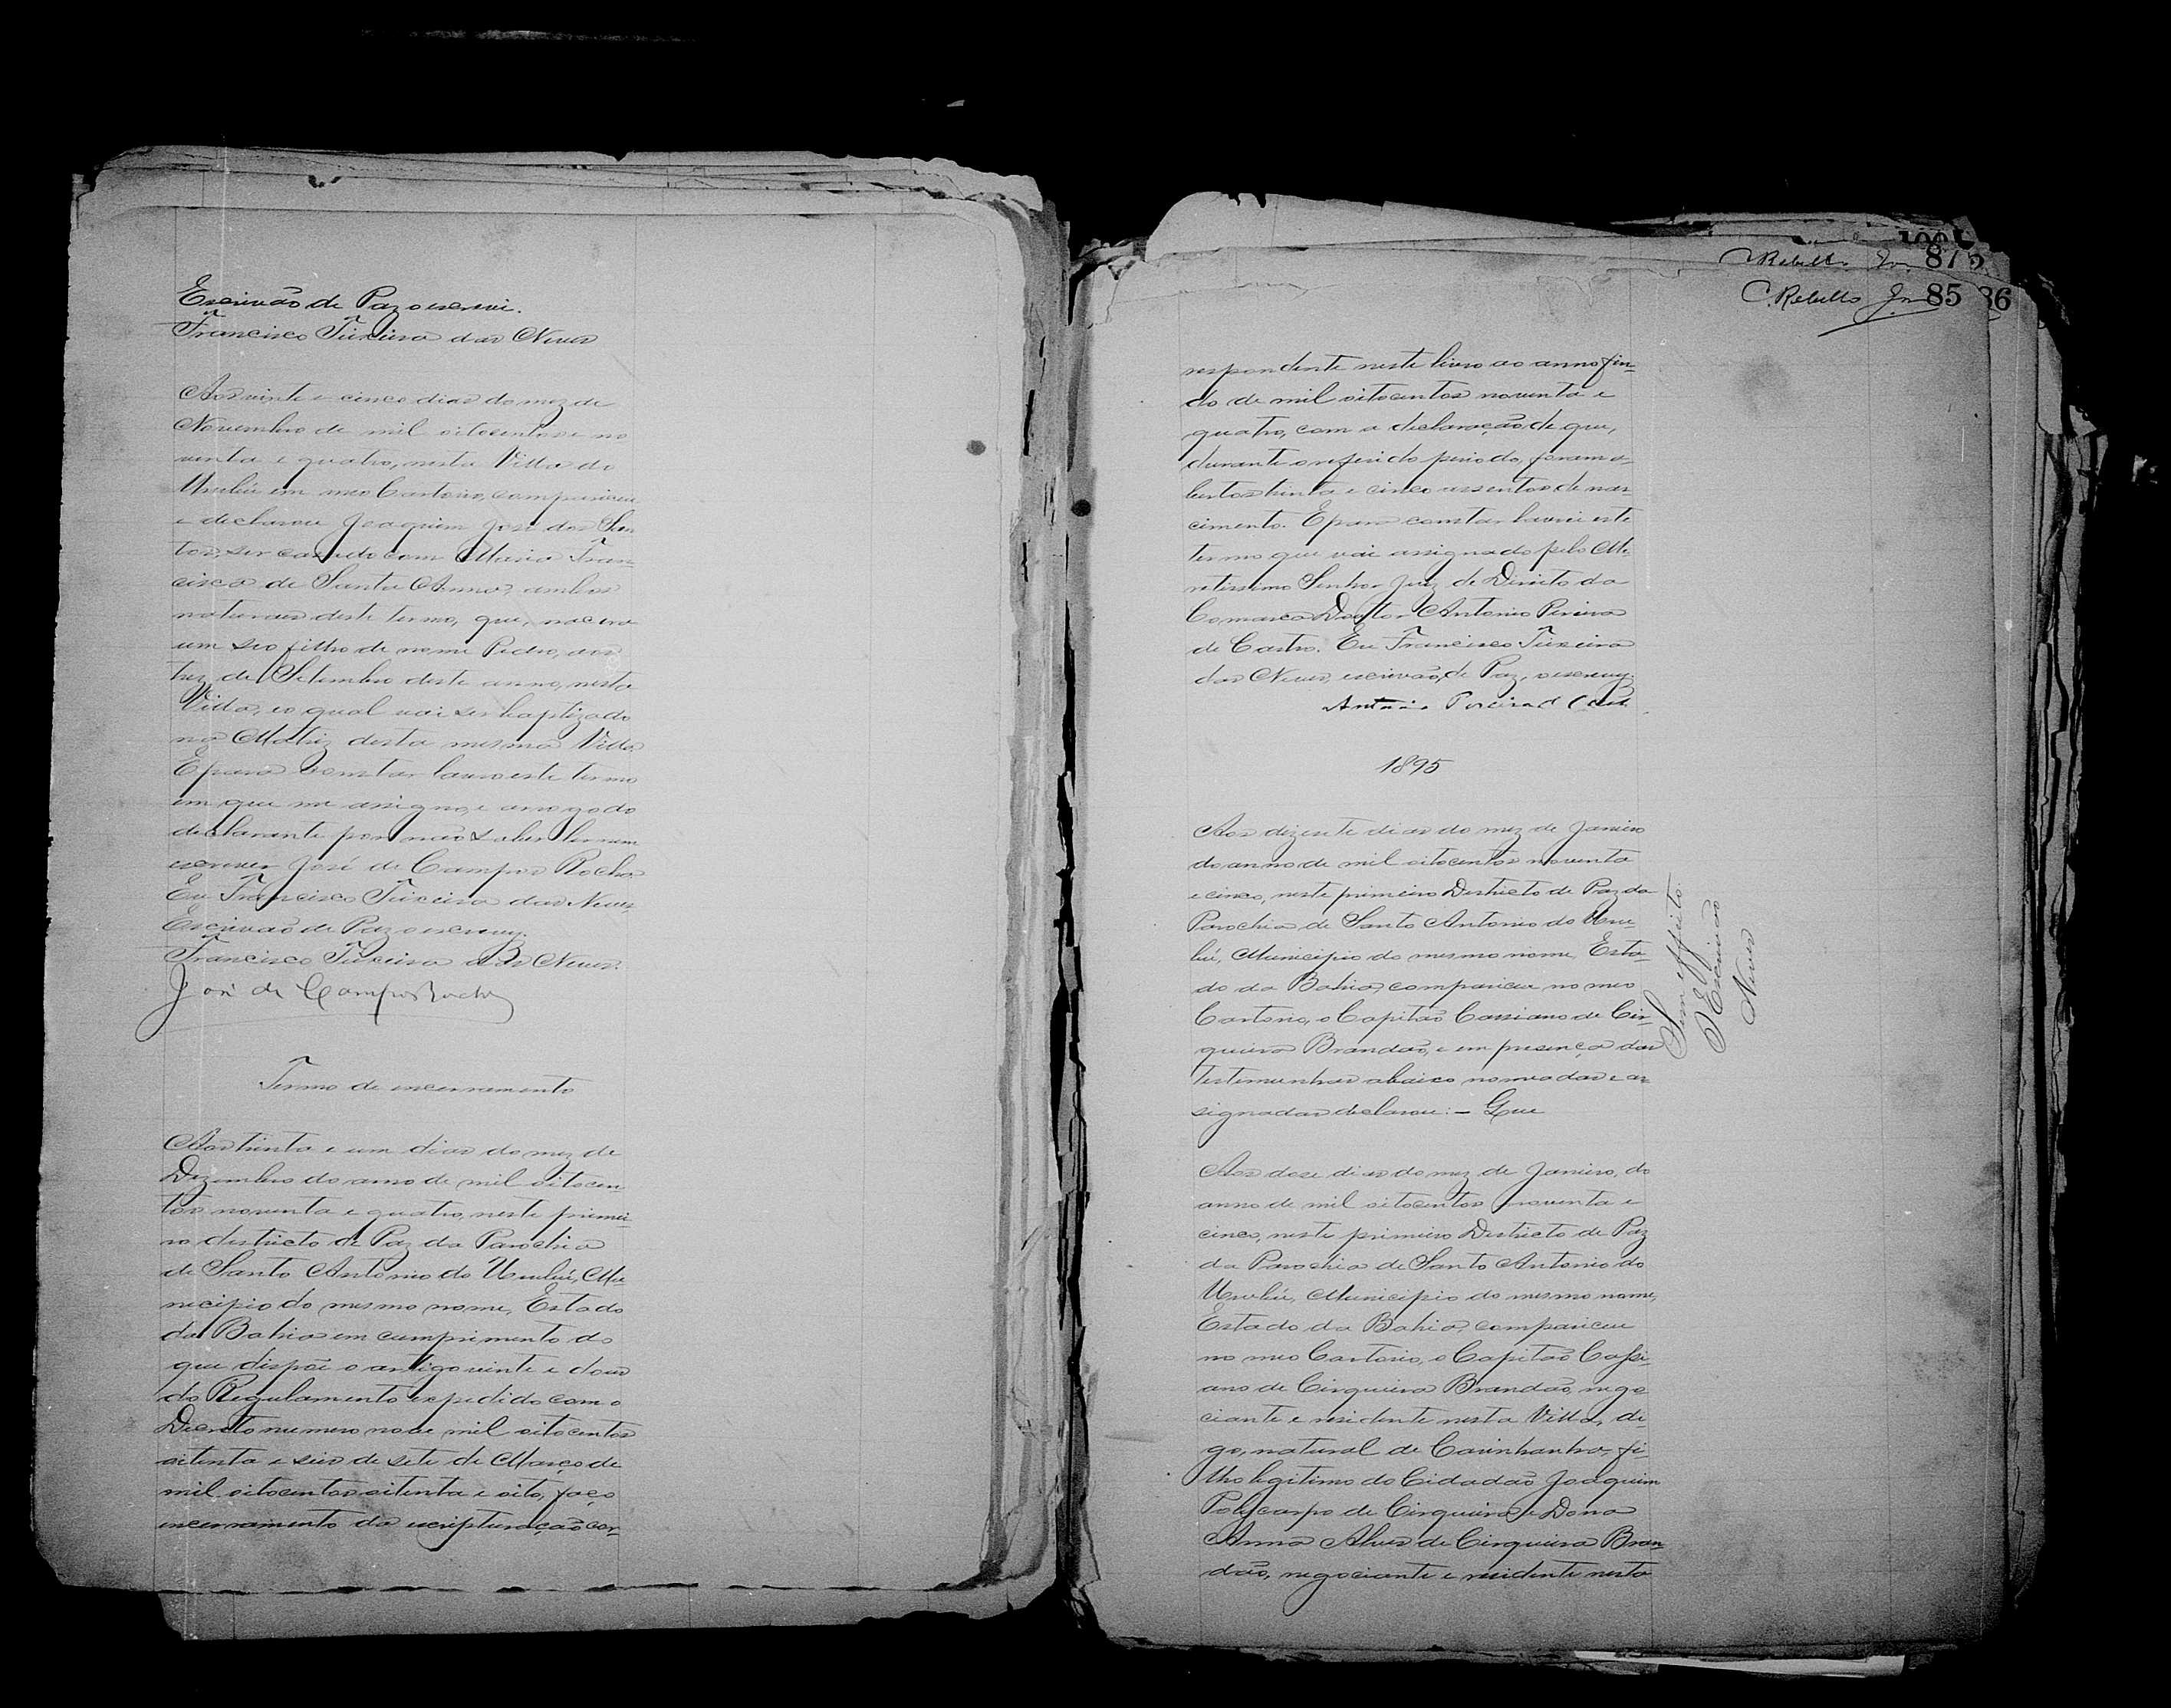 Escrivão de Paz o escrevi.
Francisco Teixeira das Neves
Aos vinte e cinco dias do mez de
Novembro de mil oitocentos e no
venta e quatro, nesta Villa do
Urubú em meo Cartorio, compareceu
e declarou Joaquim José dos San
tos, ser casado com Maria Fran
cisca de Santa Anna, ambos
naturaes deste termo, que, nacera
um seo filho de nome Pedro, aos
trez de Setembro deste anno, nesta
Villa, e o qual vai ser baptizado
na Matriz desta mesma Villa.
E para constar lavro este termo
em que me assigno, e a rogo do
declarante por não saber ler nem
escrever José de Campos Rocha.
Eu Francisco Teixeira das Neves,
Escrivão de Paz o escrevy.
Francisco Teixeira das Neves.
José de Campos Rocha
Termo de encerramento
Aos trinta e um dias do mez de
Dezembro do anno de mil oitocen
tos noventa e quatro, neste primei
ro districto de Paz da Parochia
de Santo Antonio do Urubú, Mu
nicipio do mesmo nome, Estado
da Bahia em cumprimento do
que dispõe o artigo vinte e dous
do Regulamento expedido com o
Decreto numero nove mil oitocentos
oitenta e seis de sete de Março de
mil oitocentos oitenta e oito, faço
encerramento da escripturação cor
C. Rebello Jor 87
C. Rebello Jor 85 86
respondente neste livro ao anno fin-
do de mil oitocentos noventa e
quatro, com a declaração de que,
durante o referido periodo, foram a-
bertos trinta e cinco assentos de nas
cimento. E para constar lavrei este
termo que vai assignado pelo Me-
retissimo Senhor Juiz de Direito da
Comarca Doutor Antonio Pereira
de Castro. Eu Francisco Teixeira
das Neves, escrivão de Paz, o escrevy.
Antonio Pereira d Castro.
1895
Aos dezesete dias do mez de Janeiro
do anno de mil oitocentos noventa
e cinco, neste primeiro Destricto de Paz da
Parochia de Santo Antonio do Uru-
bú, Municipio do mesmo nome, Esta-
do da Bahia, compareceu no meo
Cartorio, o Capitão Cassiano de Cir-
queira Brandão, e em presença das
testemunhas abaixo nomeadas e as
signadas declarou: – Que
Sem effeito.
O Escrivão
Neves
Aos dose dias do mez de Janeiro, do
anno de mil oitocentos noventa e
cinco, neste primeiro Destricto de Paz
da Parochia de Santo Antonio do
Urubú, Municipio do mesmo nome,
Estado da Bahia, compareceu
no meo Cartorio, o Capitão Cassi-
ano de Cirqueira Brandão, nego
ciante e residente nesta Villa, di-
go, natural de Carinhanha, fi-
lho legitimo do Cidadão Joaquim
Polycarpo de Cirqueira e Dona
Anna Alves de Cirqueira Bran
dão, negociante e residente nesta